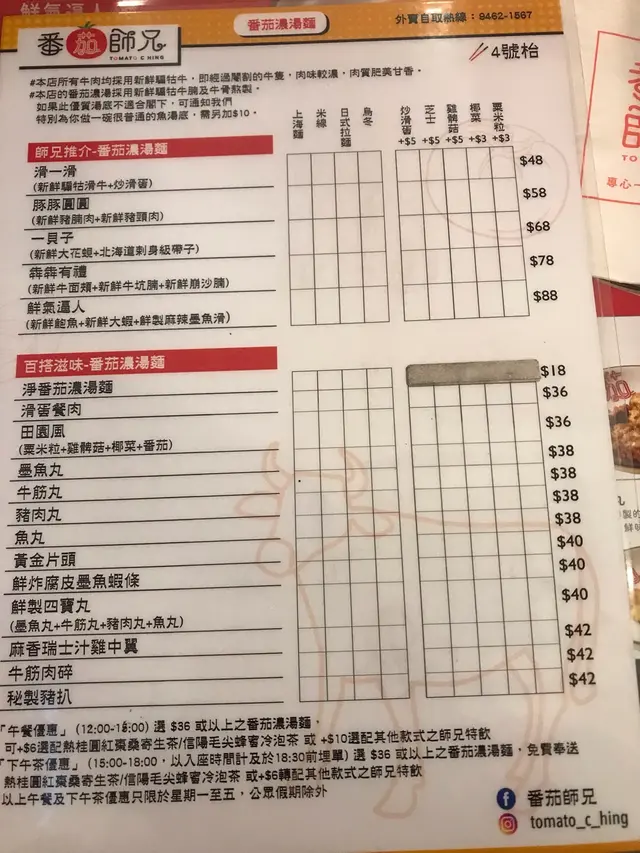 鮮氣逼人
番茄師兄
TOMATO C HING
番茄濃湯麵
外賣自取熱線：9462-1567
4號枱
#本店所有牛肉均採用新鮮騸牯牛，即經過閹割的牛隻，肉味較濃，肉質肥美甘香。
#本店的番茄濃湯採用新鮮騸牯牛腩及牛骨熬製。
如果此優質湯底不適合閣下，可通知我們
特別為你做一碗很普通的魚湯底，需另加$10。
上海麵 米線 日式拉麵 烏冬 炒滑蛋+$5 芝士+$5 雞髀菇+$5 椰菜+$3 粟米粒+$3
師兄推介-番茄濃湯麵
滑一滑 $48
(新鮮騸牯滑牛+炒滑蛋)
豚豚圓圓 $58
(新鮮豬腩肉+新鮮豬頸肉)
一貝子 $68
(新鮮大花蜆+北海道刺身級帶子)
犇犇有禮 $78
(新鮮牛面頰+新鮮牛坑腩+新鮮崩沙腩)
鮮氣逼人 $88
(新鮮鮑魚+新鮮大蝦+鮮製麻辣墨魚滑)
百搭滋味-番茄濃湯麵
淨番茄濃湯麵 $18
滑蛋餐肉 $36
田園風 $36
(粟米粒+雞髀菇+椰菜+番茄)
墨魚丸 $38
牛筋丸 $38
豬肉丸 $38
魚丸 $38
黃金片頭 $40
鮮炸腐皮墨魚蝦條 $40
鮮製四寶丸 $40
(墨魚丸+牛筋丸+豬肉丸+魚丸)
麻香瑞士汁雞中翼 $42
牛筋肉碎 $42
秘製豬扒 $42
「午餐優惠」 (12:00-15:00) 選 $36 或以上之番茄濃湯麵，
可+$6選配熱桂圓紅棗桑寄生茶/信陽毛尖蜂蜜冷泡茶 或 +$10選配其他款式之師兄特飲
「下午茶優惠」 (15:00-18:00，以入座時間計及於18:30前埋單) 選 $36 或以上之番茄濃湯麵，免費奉送
熱桂圓紅棗桑寄生茶/信陽毛尖蜂蜜冷泡茶 或+$6轉配其他款式之師兄特飲
以上午餐及下午茶優惠只限於星期一至五，公眾假期除外
番茄師兄
tomato_c_hing
專心一